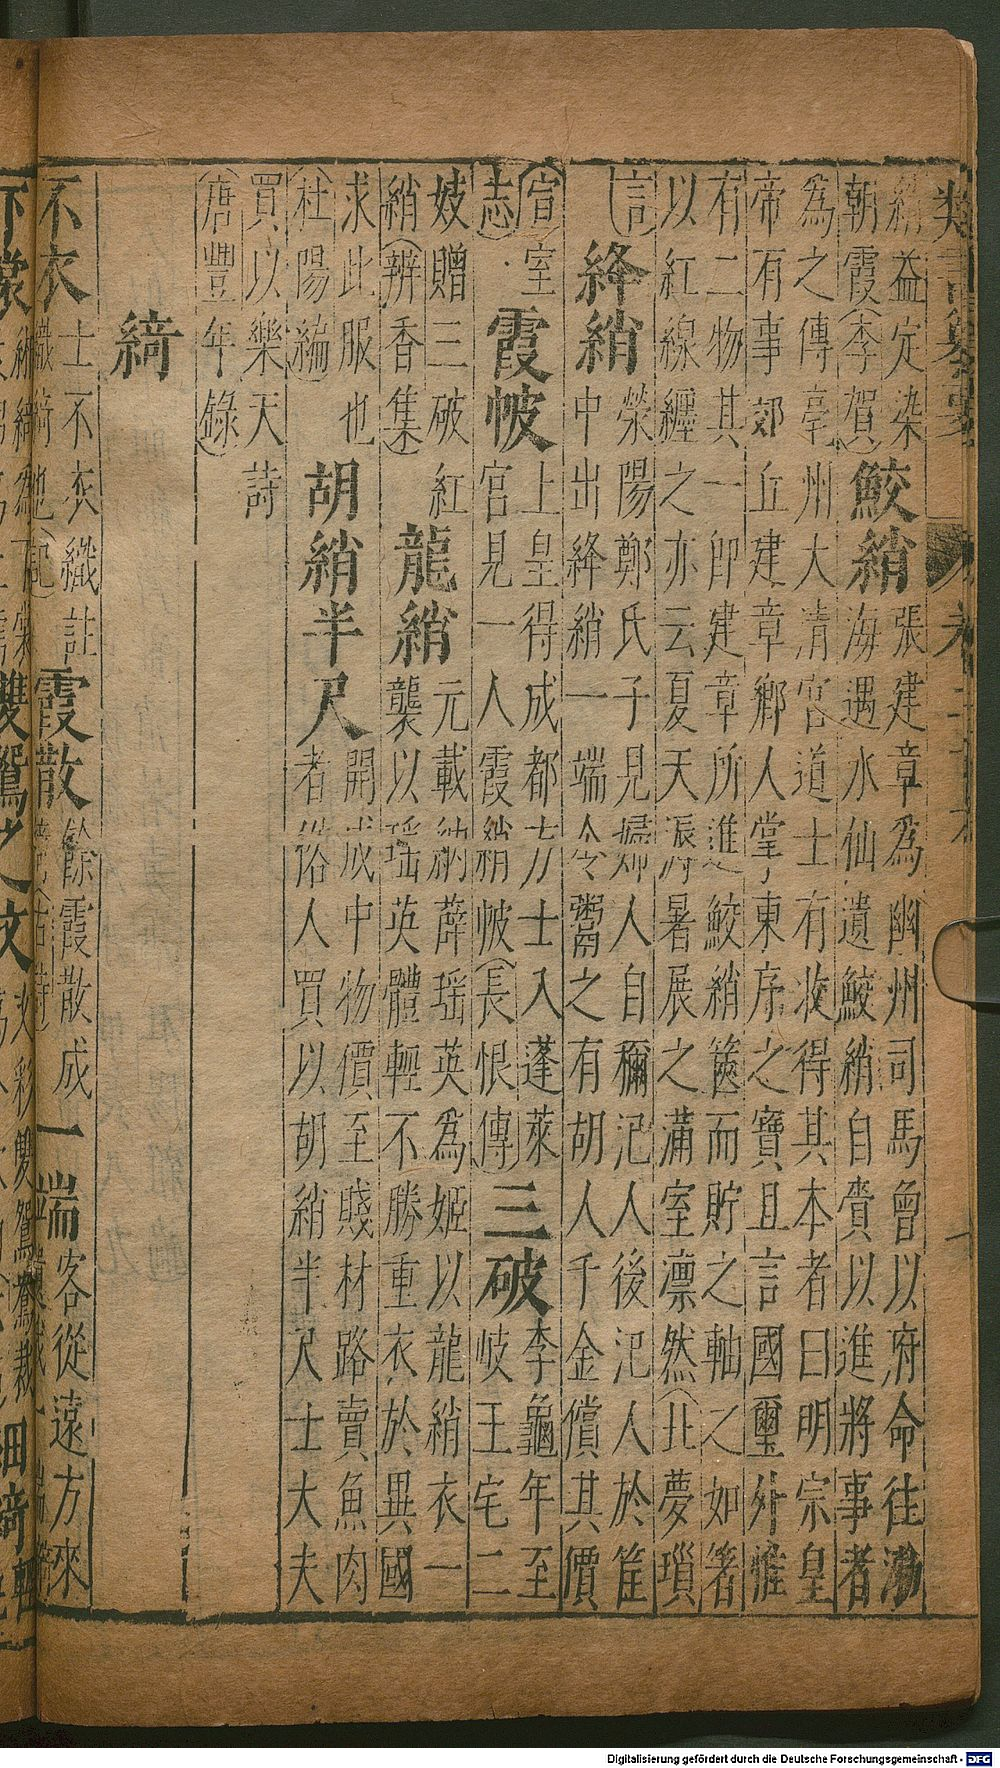 綃益定染
朝霞(李賀)
鮫綃
張建章為幽州司馬曾以府命往渤
海遇水仙遺鮫綃自賫以進將事者
為之傳亭州大清宮道士有收得其本者曰明宗皇
帝有事郊丘建章鄉人掌東序之寶且言國璽外惟
有二物其一即建章所進鮫綃篋而貯之軸之如箸
以紅線纏之亦云夏天漲暑展之滿室凛然(北夢瑣
言)
絳綃
滎陽鄭氏子見婦人自稱汜人後汜人於筐
中出絳綃一端令鬻之有胡人千金償其價
(宣室
志)
霞帔
上皇得成都方士入蓬萊
宮見一人霞綃帔(長恨傳)
三破
李龜年至
岐王宅二
妓贈三破紅
綃(辨香集)
龍綃
元載納薛瑶英為姬以龍綃衣一
襲以瑶英體輕不勝重衣於異國
求此服也
(杜陽編)
胡綃半尺
開成中物價至賤材路賣魚肉
者俗人買以胡綃半尺士大夫
買以樂天詩
(唐豐年錄)
綺
不衣
士不衣織註
織綺也(記)
霞散
餘霞散成
綺(古詩)
一端
客從遠方來
Digitalisierung gefördert durch die Deutsche Forschungsgemeinschaft - DFG